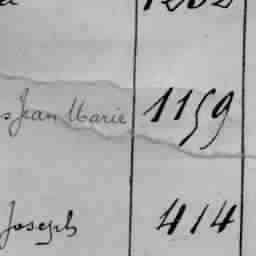 Jean Marie 1159
Joseph 414